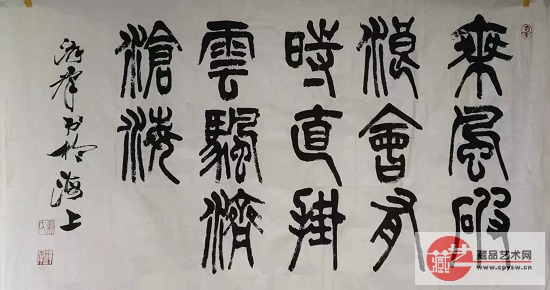 乘風破
浪會有
時直掛
雲颿濟
滄海
书於海上
藏品艺术网
www.cpysw.cn